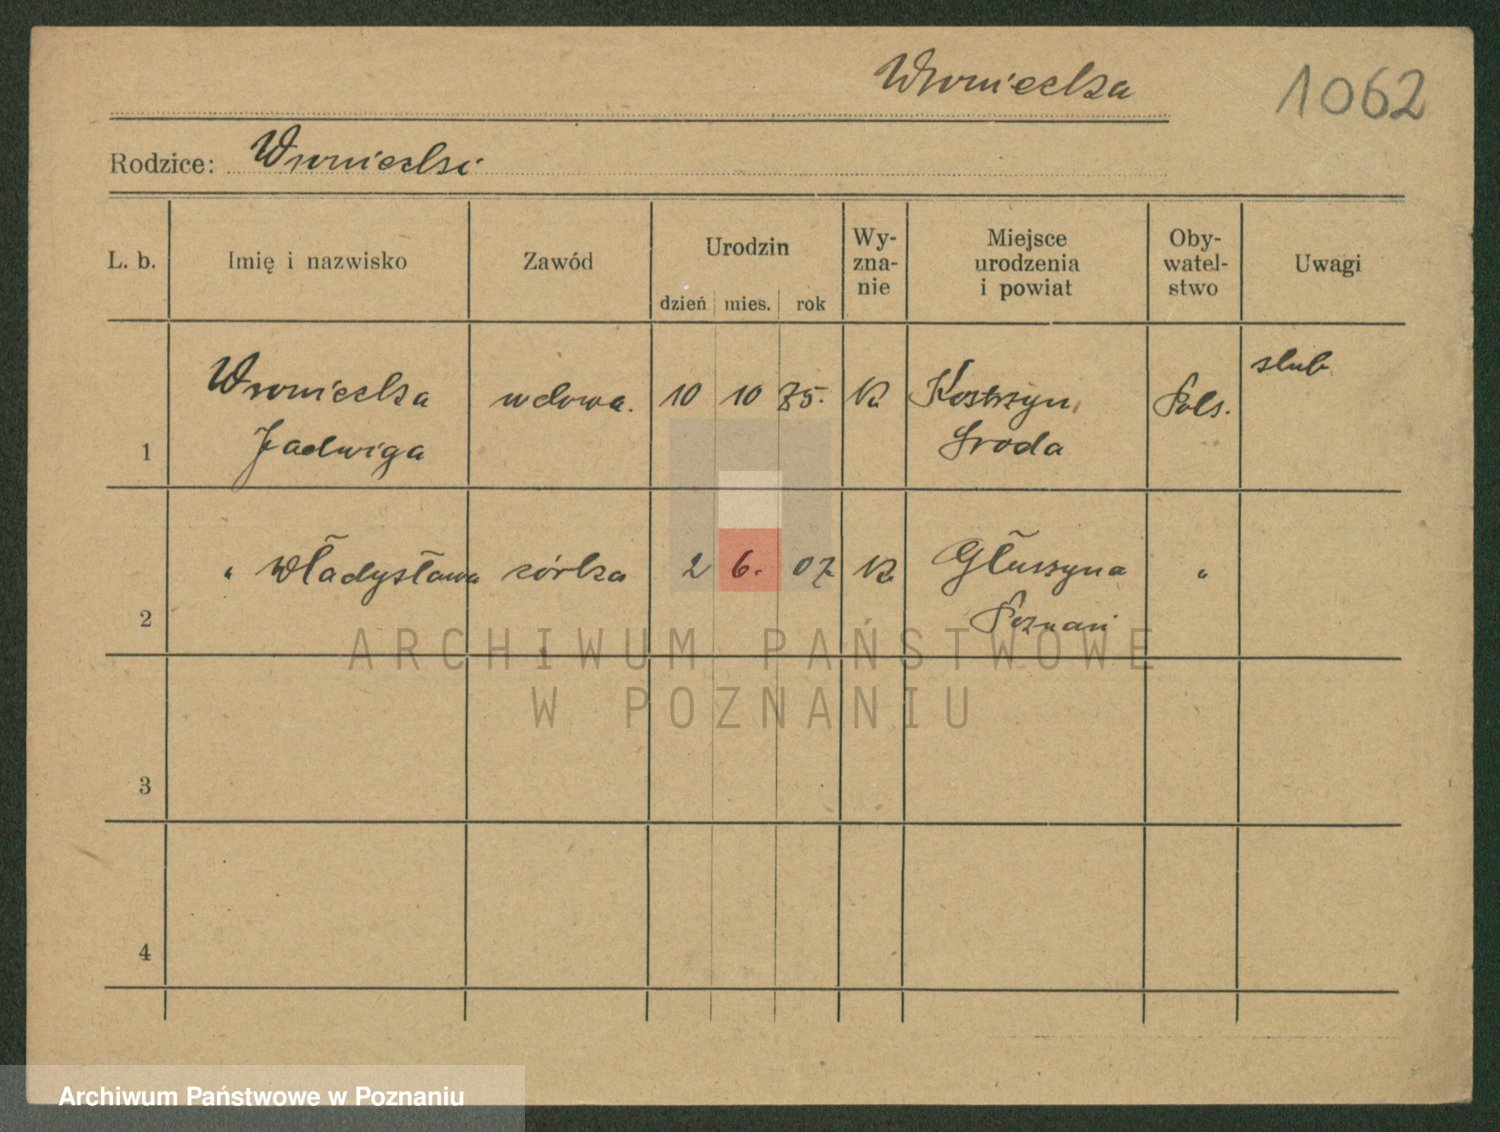 Wroniecka
1062
Rodzice: Wroniecki
L. b. Imię i nazwisko Zawód Urodzin dzień mies. rok Wy-zna-nie Miejsce urodzenia i powiat Oby-watel-stwo Uwagi
1 Wroniecka Jadwiga wdowa. 10 10 75. k. Kostrzyn, Środa Pols. slub
2 " Władysława córka 2 6. 07 k. Głuszyna Poznań "
3
4
ARCHIWUM PAŃSTWOWE
W POZNANIU
Archiwum Państwowe w Poznaniu